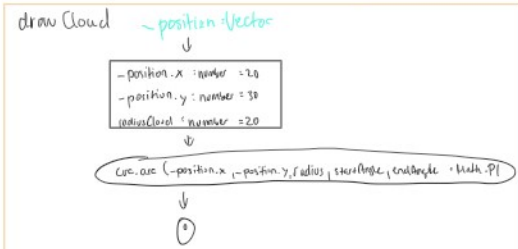 drawCloud -position:Vector
-position.x : number = 20
-position.y : number = 30
radiusCloud : number = 20
crc.arc (-position.x, -position.y, radius, startAngle, endAngle * Math.PI